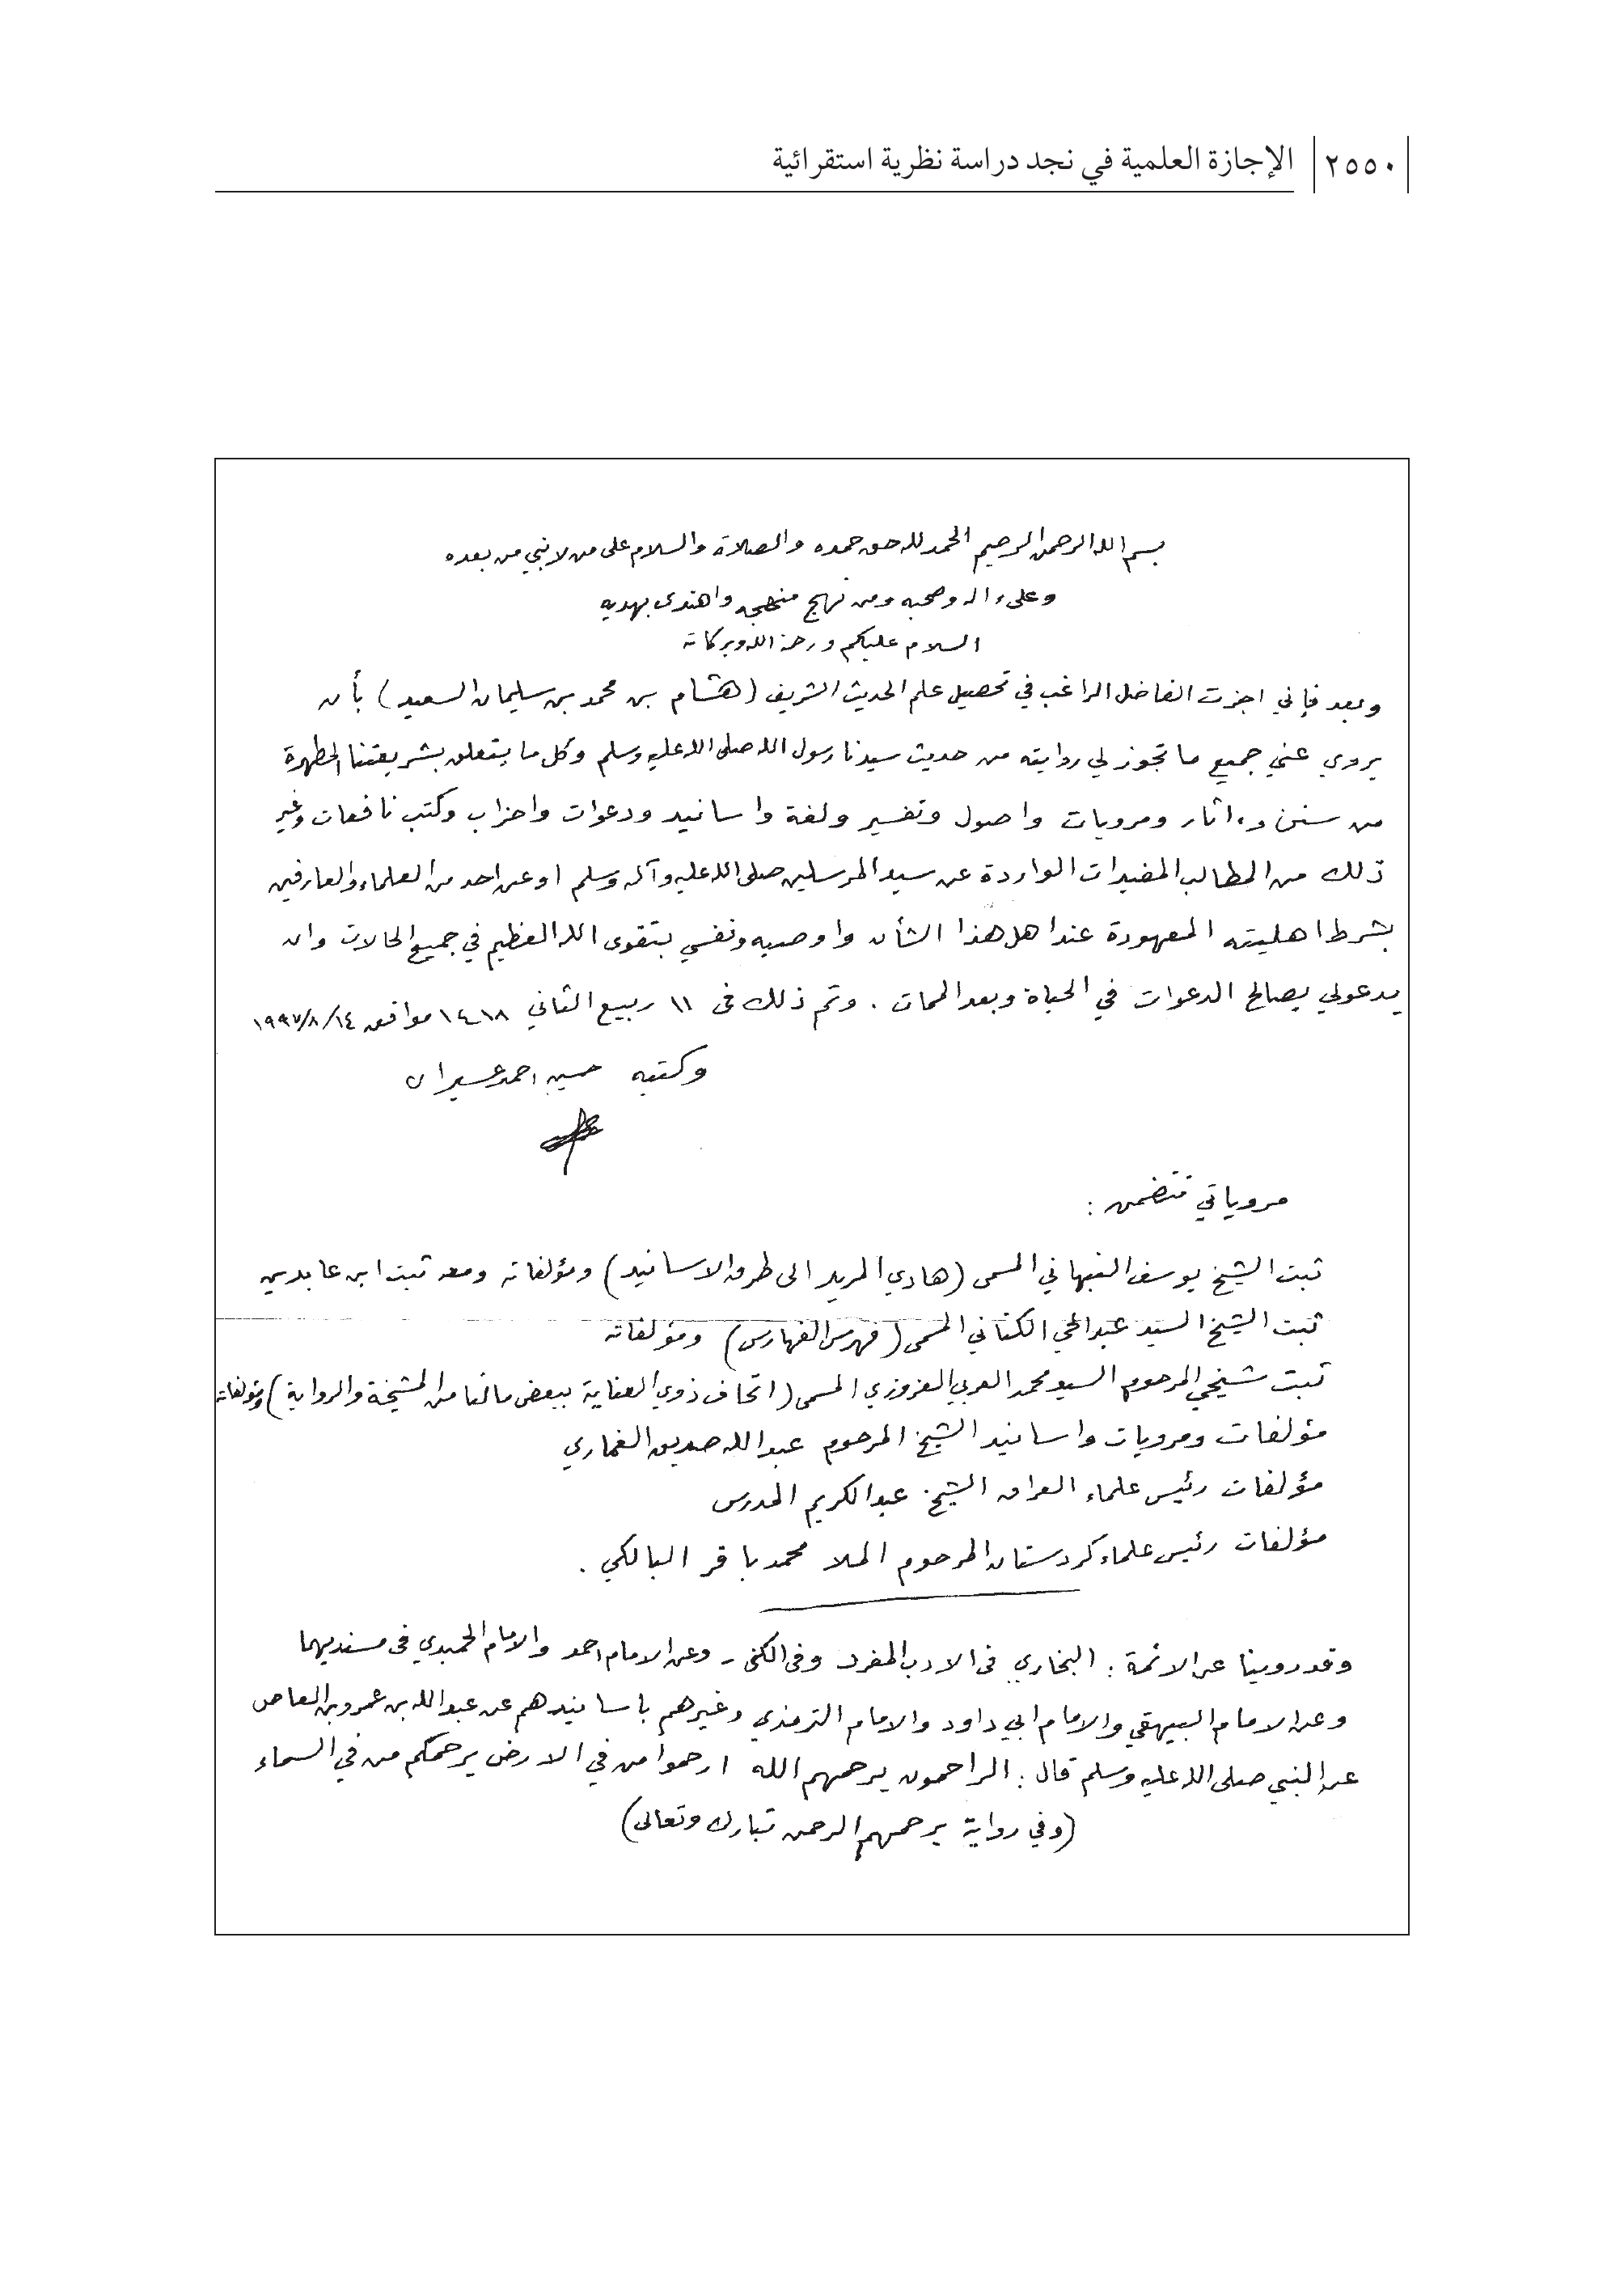 ٢٥٥٠ الإجازة العلمية في نجد دراسة نظرية استقرائية
بسم الله الرحمن الرحيم الحمد لله حق حمده والصلاة والسلام على من لا نبي من بعده
وعلى ءاله وصحبه ومن نهج منهجه واهتدى بهديه
السلام عليكم ورحمة الله وبركاته
وبعد فإني اجزت الفاضل الراغب في تحصيل علم الحديث الشريف (هشام بن محمد بن سليمان السعيد) بأن
يروي عني جميع ما تجوز لي روايته من حديث سيدنا رسول الله صلى الله عليه وسلم وكل ما يتعلق بشريعتنا المطهرة
من سنن وءاثار ومرويات واصول وتفسير ولغة واسانيد ودعوات واحزاب وكتب نافعات وغير
ذلك من المطالب المفيدات الواردة عن سيد المرسلين صلى الله عليه وآله وسلم او عن احد من العلماء والعارفين
بشرط اهليته المعهودة عند اهل هذا الشأن واوصيه ونفسي بتقوى الله العظيم في جميع الحالات وان
يدعو لي بصالح الدعوات في الحياة وبعد الممات . وتم ذلك في ١١ ربيع الثاني ١٤١٨ موافق ١٩٩٧/٨/١٤
وكتبه حسين احمد عسيران
مروياتي تتضمن :
ثبت الشيخ يوسف النبهاني المسمى (هادي المريد الى طرق الاسانيد) ومؤلفاته ومعه ثبت ابن عابدين
ثبت الشيخ السيد عبد الحي الكتاني المسمى (فهرس الفهارس) ومؤلفاته
ثبت شيخي المرحوم السيد محمد العربي العزوزي المسمى (اتحاف ذوي العناية ببعض ما لنا من المشيخة والرواية) ومؤلفاته
مؤلفات ومرويات واسانيد الشيخ المرحوم عبد الله صديق الغماري
مؤلفات رئيس علماء العراق الشيخ عبد الكريم المدرس
مؤلفات رئيس علماء كردستان المرحوم الملا محمد باقر البالكي .
وقد روينا عن الائمة : البخاري في الادب المفرد وفي الكنى - وعن الامام احمد والامام الحميدي في مسنديهما
وعن الامام البيهقي والامام ابي داود والامام الترمذي وغيرهم باسانيدهم عن عبد الله بن عمرو بن العاص
عن النبي صلى الله عليه وسلم قال : الراحمون يرحمهم الله ارحموا من في الارض يرحمكم من في السماء
(وفي رواية يرحمهم الرحمن تبارك وتعالى)